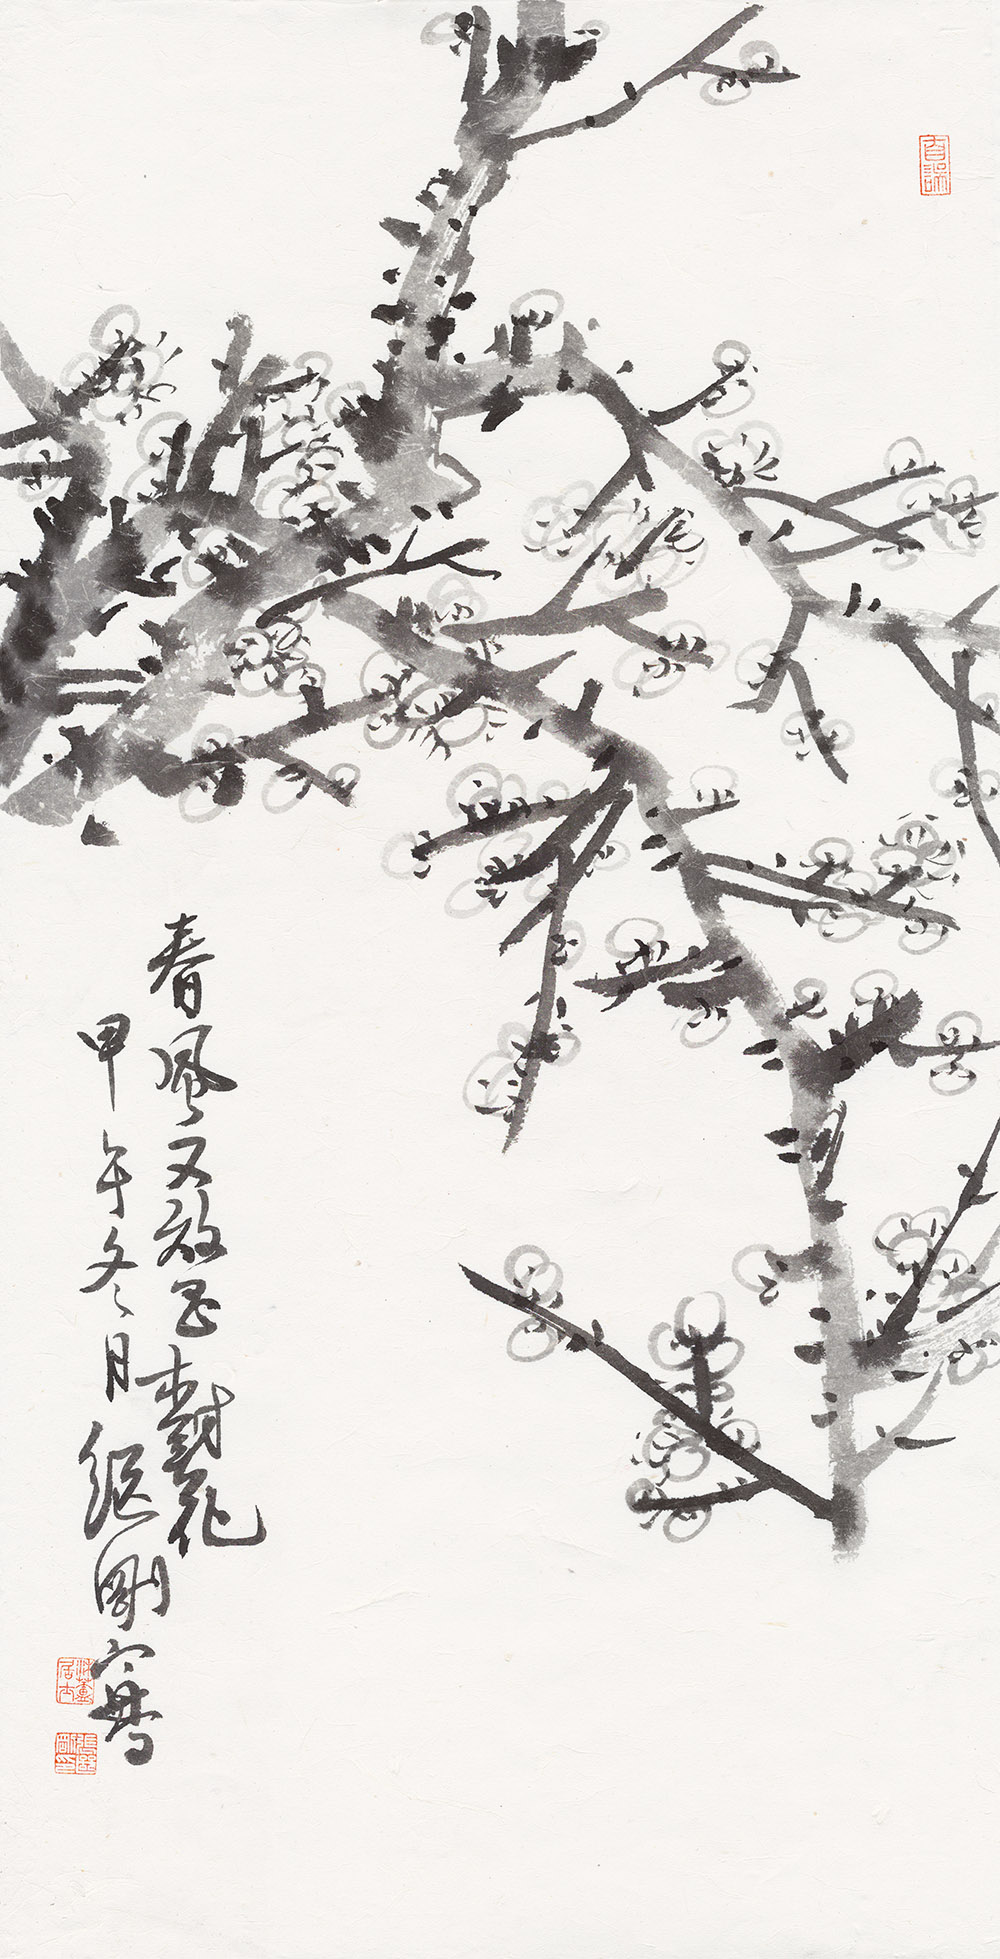 春風又放玉樹花
甲午冬月継剛寫